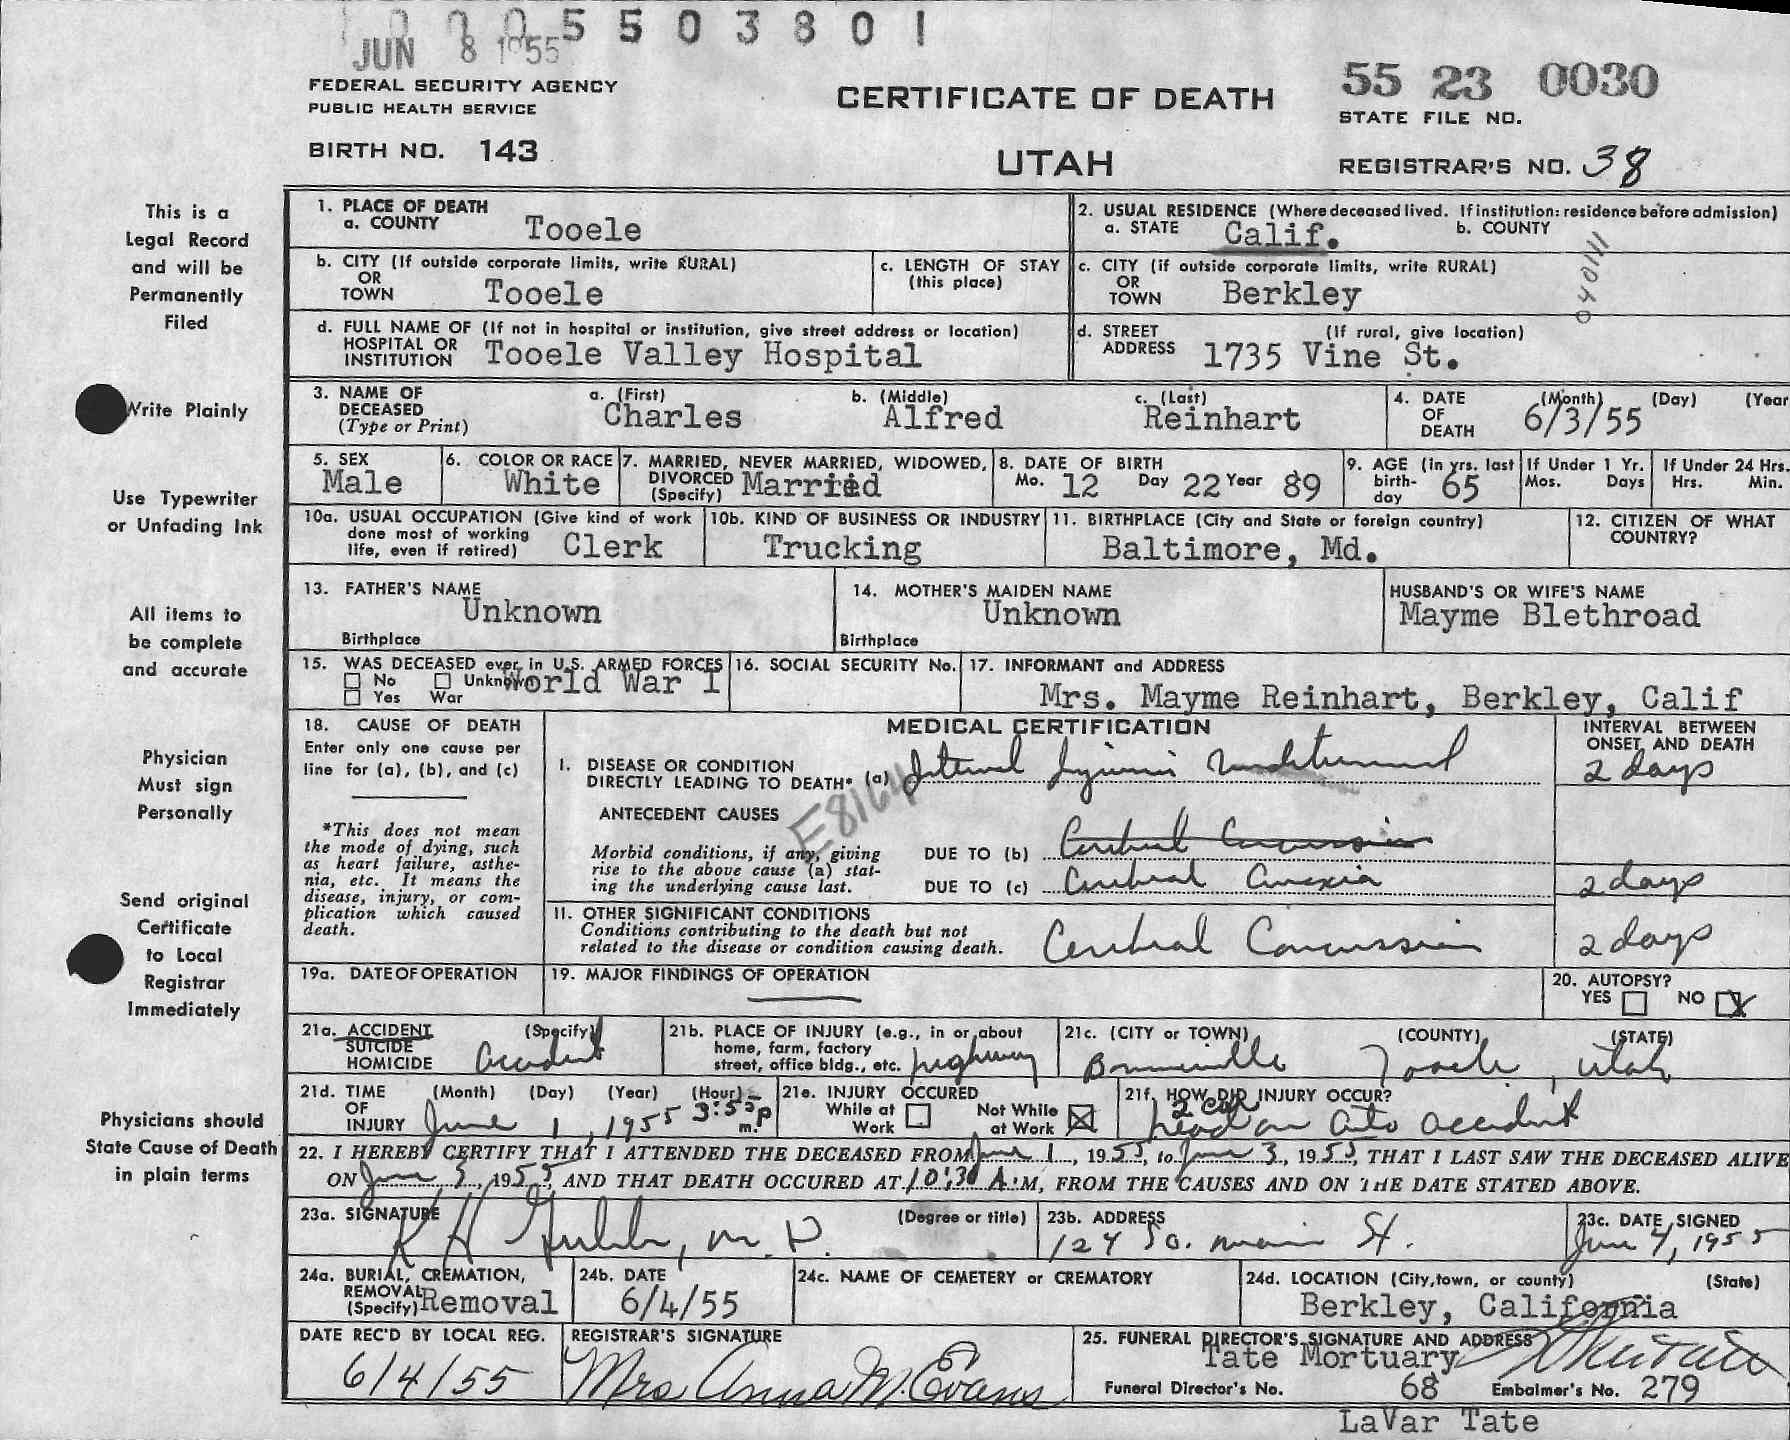 JUN 8 1955 5503801
FEDERAL SECURITY AGENCY
PUBLIC HEALTH SERVICE
BIRTH NO. 143
CERTIFICATE OF DEATH
UTAH
55 23 0030
STATE FILE NO.
REGISTRAR'S NO. 38
This is a
Legal Record
and will be
Permanently
Filed
Write Plainly
Use Typewriter
or Unfading Ink
All items to
be complete
and accurate
Physician
Must sign
Personally
Send original
Certificate
to Local
Registrar
Immediately
Physicians should
State Cause of Death
in plain terms
1. PLACE OF DEATH
a. COUNTY Tooele
2. USUAL RESIDENCE (Where deceased lived. If institution: residence before admission)
a. STATE Calif. b. COUNTY
040111
b. CITY (If outside corporate limits, write RURAL)
OR
TOWN Tooele
c. LENGTH OF STAY
(this place)
c. CITY (if outside corporate limits, write RURAL)
OR
TOWN Berkley
d. FULL NAME OF (If not in hospital or institution, give street address or location)
HOSPITAL OR
INSTITUTION Tooele Valley Hospital
d. STREET (If rural, give location)
ADDRESS 1735 Vine St.
3. NAME OF
DECEASED
(Type or Print)
a. (First) b. (Middle) c. (Last)
Charles Alfred Reinhart
4. DATE (Month) (Day) (Year
OF
DEATH 6/3/55
5. SEX
Male
6. COLOR OR RACE
White
7. MARRIED, NEVER MARRIED, WIDOWED,
DIVORCED
(Specify) Married
8. DATE OF BIRTH
Mo. 12 Day 22 Year 89
9. AGE (in yrs. last
birth-
day 65
If Under 1 Yr.
Mos. Days
If Under 24 Hrs.
Hrs. Min.
10a. USUAL OCCUPATION (Give kind of work
done most of working
life, even if retired) Clerk
10b. KIND OF BUSINESS OR INDUSTRY
Trucking
11. BIRTHPLACE (City and State or foreign country)
Baltimore, Md.
12. CITIZEN OF WHAT
COUNTRY?
13. FATHER'S NAME
Unknown
Birthplace
14. MOTHER'S MAIDEN NAME
Unknown
Birthplace
HUSBAND'S OR WIFE'S NAME
Mayme Blethroad
15. WAS DECEASED ever in U.S. ARMED FORCES
No Unknown World War I
Yes War
16. SOCIAL SECURITY No.
17. INFORMANT and ADDRESS
Mrs. Mayme Reinhart, Berkley, Calif
18. CAUSE OF DEATH
Enter only one cause per
line for (a), (b), and (c)
*This does not mean
the mode of dying, such
as heart failure, asthe-
nia, etc. It means the
disease, injury, or com-
plication which caused
death.
MEDICAL CERTIFICATION
INTERVAL BETWEEN
ONSET AND DEATH
I. DISEASE OR CONDITION
DIRECTLY LEADING TO DEATH* (a) Internal Injuries Undetermined 2 days
E8164
ANTECEDENT CAUSES
Morbid conditions, if any, giving
rise to the above cause (a) stat-
ing the underlying cause last.
DUE TO (b) Cerebral Concussion
DUE TO (c) Cerebral Anoxia 2 days
II. OTHER SIGNIFICANT CONDITIONS
Conditions contributing to the death but not
related to the disease or condition causing death.
Cerebral Concussion 2 days
19a. DATE OF OPERATION
19. MAJOR FINDINGS OF OPERATION
20. AUTOPSY?
YES NO X
21a. ACCIDENT (Specify)
SUICIDE
HOMICIDE accident
21b. PLACE OF INJURY (e.g., in or about
home, farm, factory
street, office bldg., etc. highway
21c. (CITY or TOWN) (COUNTY) (STATE)
Bonneville Tooele, Utah
21d. TIME (Month) (Day) (Year) (Hour)
OF
INJURY June 1, 1955 3:50 p m.
21e. INJURY OCCURED
While at Work Not While at Work X
21f. HOW DID INJURY OCCUR?
2 car
head on auto accident
22. I HEREBY CERTIFY THAT I ATTENDED THE DECEASED FROM June 1, 1955, to June 3, 1955, THAT I LAST SAW THE DECEASED ALIVE
ON June 3, 1955, AND THAT DEATH OCCURED AT 10:30 A.M, FROM THE CAUSES AND ON THE DATE STATED ABOVE.
23a. SIGNATURE (Degree or title)
K H M.D.
23b. ADDRESS
124 So. Main St.
23c. DATE SIGNED
June 4, 1955
24a. BURIAL, CREMATION,
REMOVAL
(Specify) Removal
24b. DATE
6/4/55
24c. NAME OF CEMETERY or CREMATORY
24d. LOCATION (City, town, or county) (State)
Berkley, California
DATE REC'D BY LOCAL REG.
6/4/55
REGISTRAR'S SIGNATURE
Mrs Anna M. Evans
25. FUNERAL DIRECTOR'S SIGNATURE AND ADDRESS
Tate Mortuary
Funeral Director's No. 68 Embalmer's No. 279
LaVar Tate